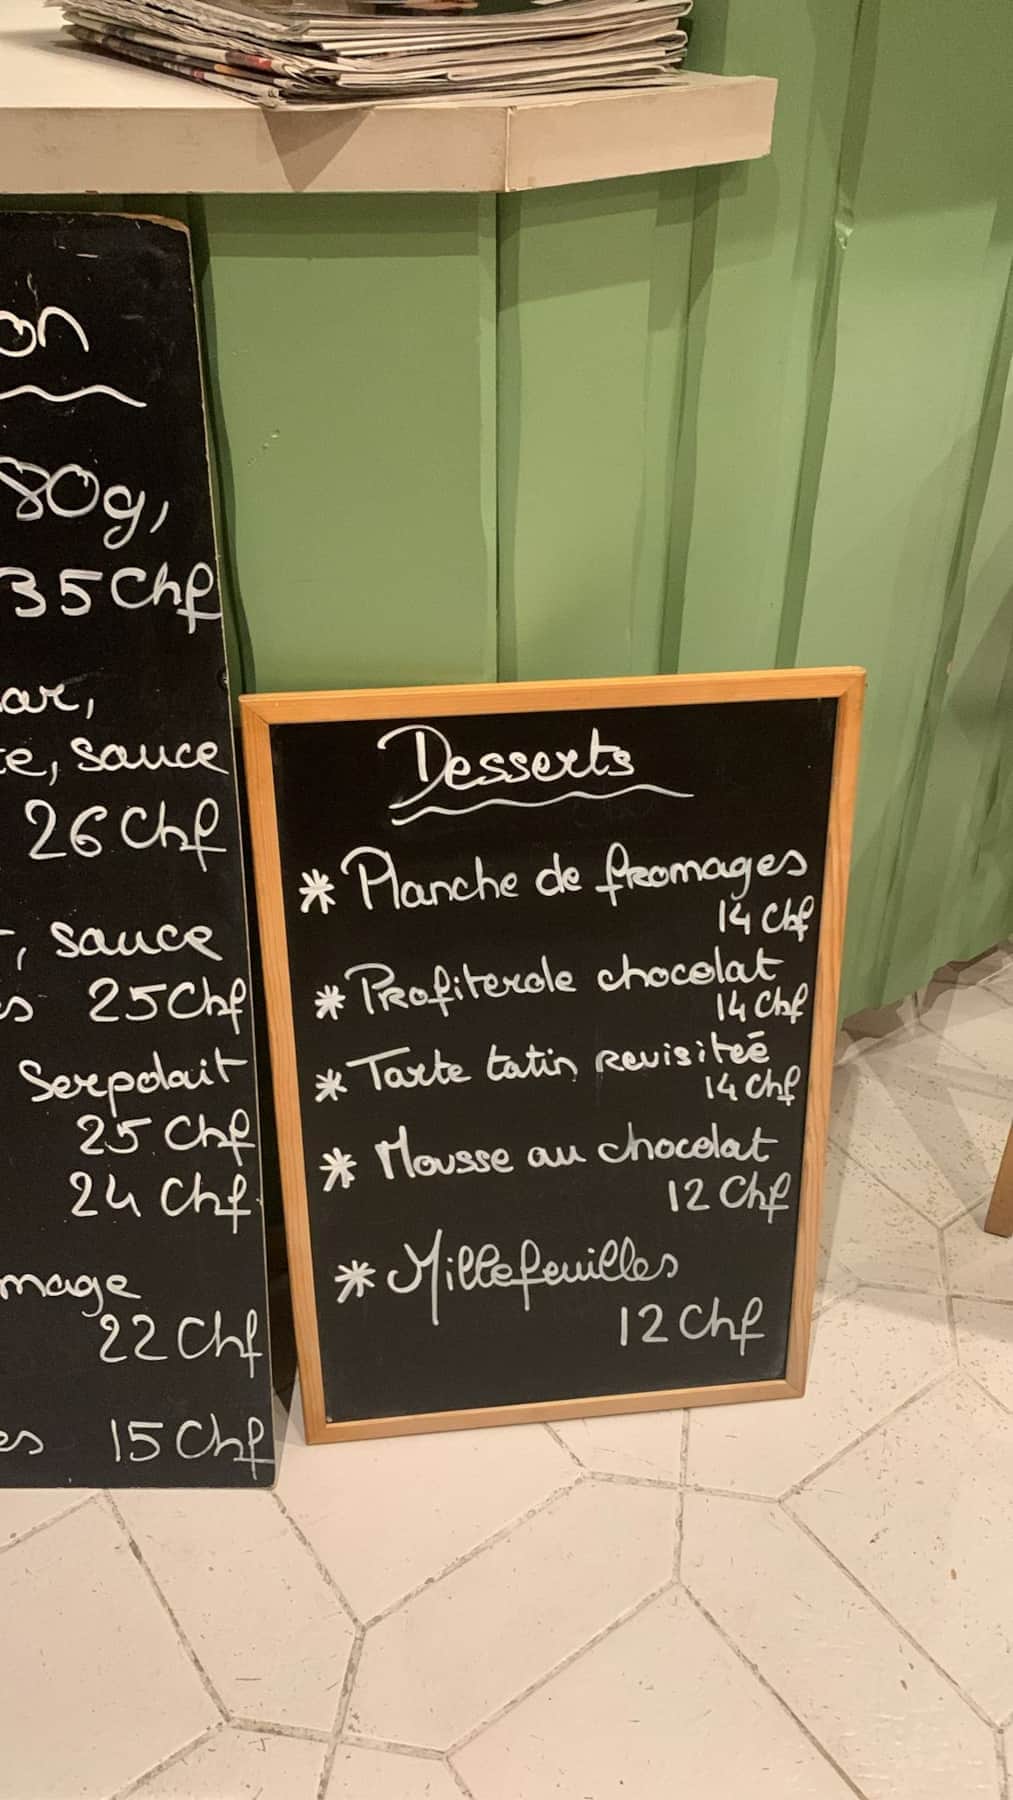 on
80g,
35 Chf
ar,
te, sauce
26 Chf
, sauce
es 25 Chf
Serpolait
25 Chf
24 Chf
mage
22 Chf
es 15 Chf
Desserts
* Planche de fromages
14 Chf
* Profiterole chocolat
14 Chf
* Tarte tatin revisiteé
14 Chf
* Mousse au chocolat
12 Chf
* Millefeuilles
12 Chf